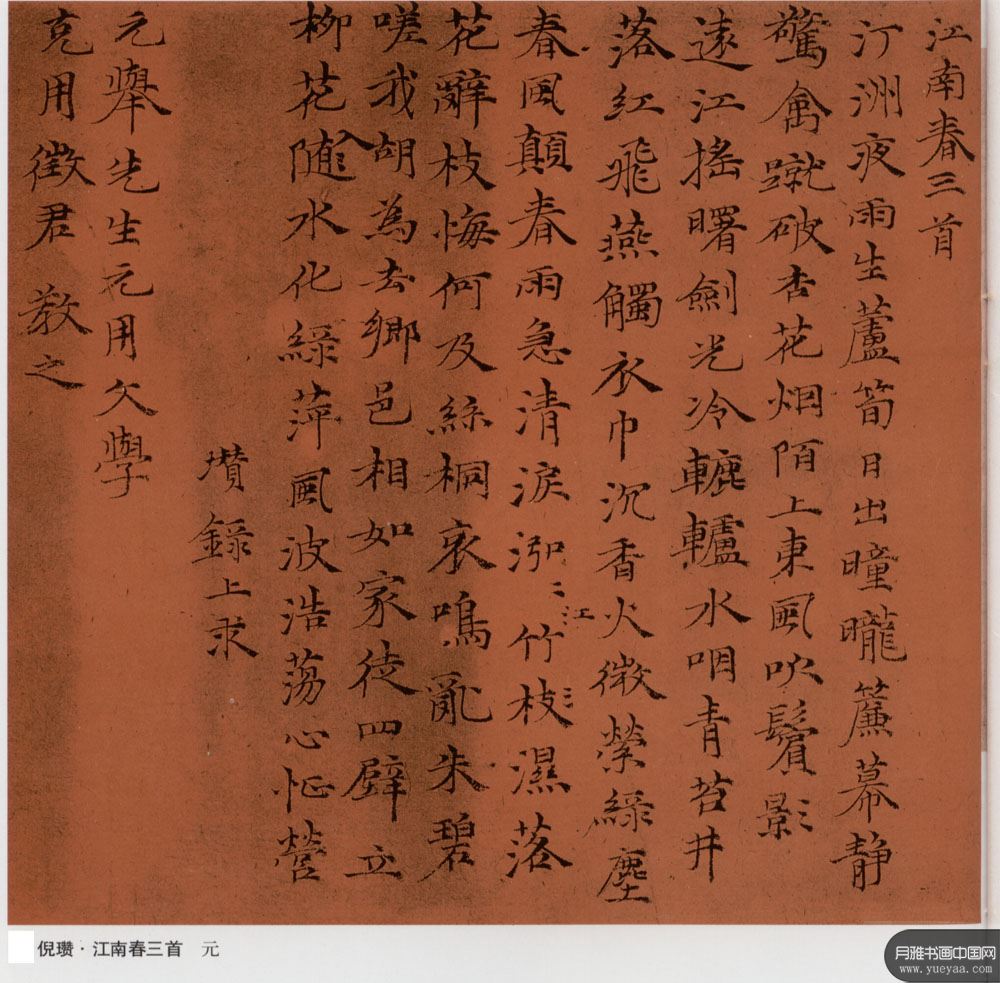 江南春三首
汀洲夜雨生蘆筍日出曈曨簾幕静
驚禽蹴破杏花烟陌上東風吹鬢影
遠江搖曙劍光冷轆轤水咽青苔井
落紅飛燕觸衣巾沉香火微縈緑塵
春風顛春雨急清淚泓〻江竹枝濕落
花辭枝悔何及絲桐哀鳴亂朱碧
嗟我胡為去鄉邑相如家徒四壁立
柳花入隨水化緑萍風波浩蕩心怔營
瓚錄上求
元舉先生元用文學
克用徵君教之
倪瓒·江南春三首 元
月雅书画中国网
www.yueyaa.com